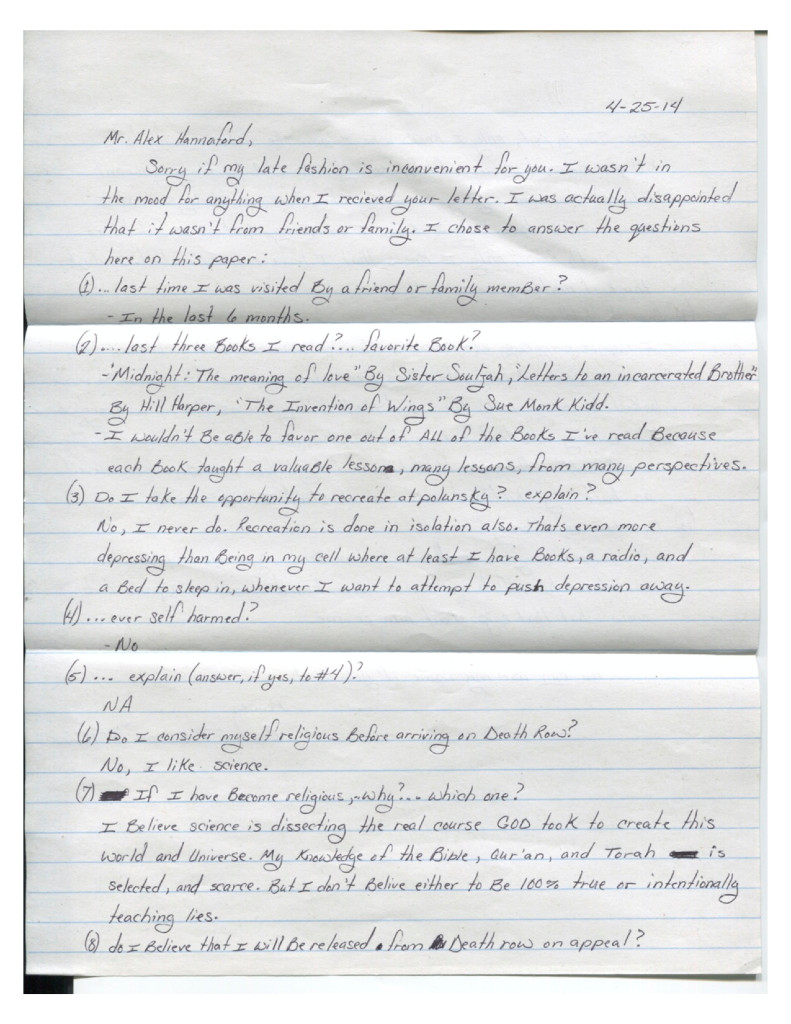 4-25-14
Mr. Alex Hannaford,
Sorry if my late fashion is inconvenient for you. I wasn't in
the mood for anything when I recieved your letter. I was actually disappointed
that it wasn't from friends or family. I chose to answer the questions
here on this paper:
(1)... last time I was visited By a friend or family memBer?
- In the last 6 months.
(2).... last three Books I read?... favorite Book?
- "Midnight: The meaning of love" By Sister Souljah, "Letters to an incarcerated Brother"
By Hill Harper, "The Invention of Wings" By Sue Monk Kidd.
- I wouldn't Be aBle to favor one out of ALL of the Books I've read Because
each Book taught a valuaBle lesson, many lessons, from many perspectives.
(3) Do I take the opportunity to recreate at polunsky? explain?
No, I never do. Recreation is done in isolation also. Thats even more
depressing than Being in my cell where at least I have Books, a radio, and
a Bed to sleep in, whenever I want to attempt to push depression away.
(4)... ever self harmed?
- No
(5)... explain (answer, if yes, to #4)?
NA
(6) Do I consider myself religious Before arriving on Death Row?
No, I like science.
(7) If I have Become religious, - why?... which one?
I Believe science is dissecting the real course GOD took to create this
world and Universe. My Knowledge of the BiBle, Qur'an, and Torah is
selected, and scarce. But I don't Belive either to Be 100% true or intentionally
teaching lies.
(8) do I Believe that I will Be released from Death row on appeal?